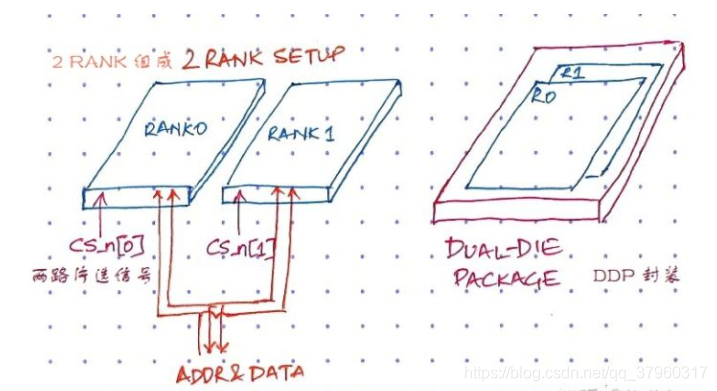 2 RANK 组成 2 RANK SETUP
RANK0
RANK 1
CS_n[0]
CS_n[1]
两路片选信号
ADDR & DATA
R1
R0
DUAL-DIE
PACKAGE
DDP 封装
https://blog.csdn.net/qq_37960317